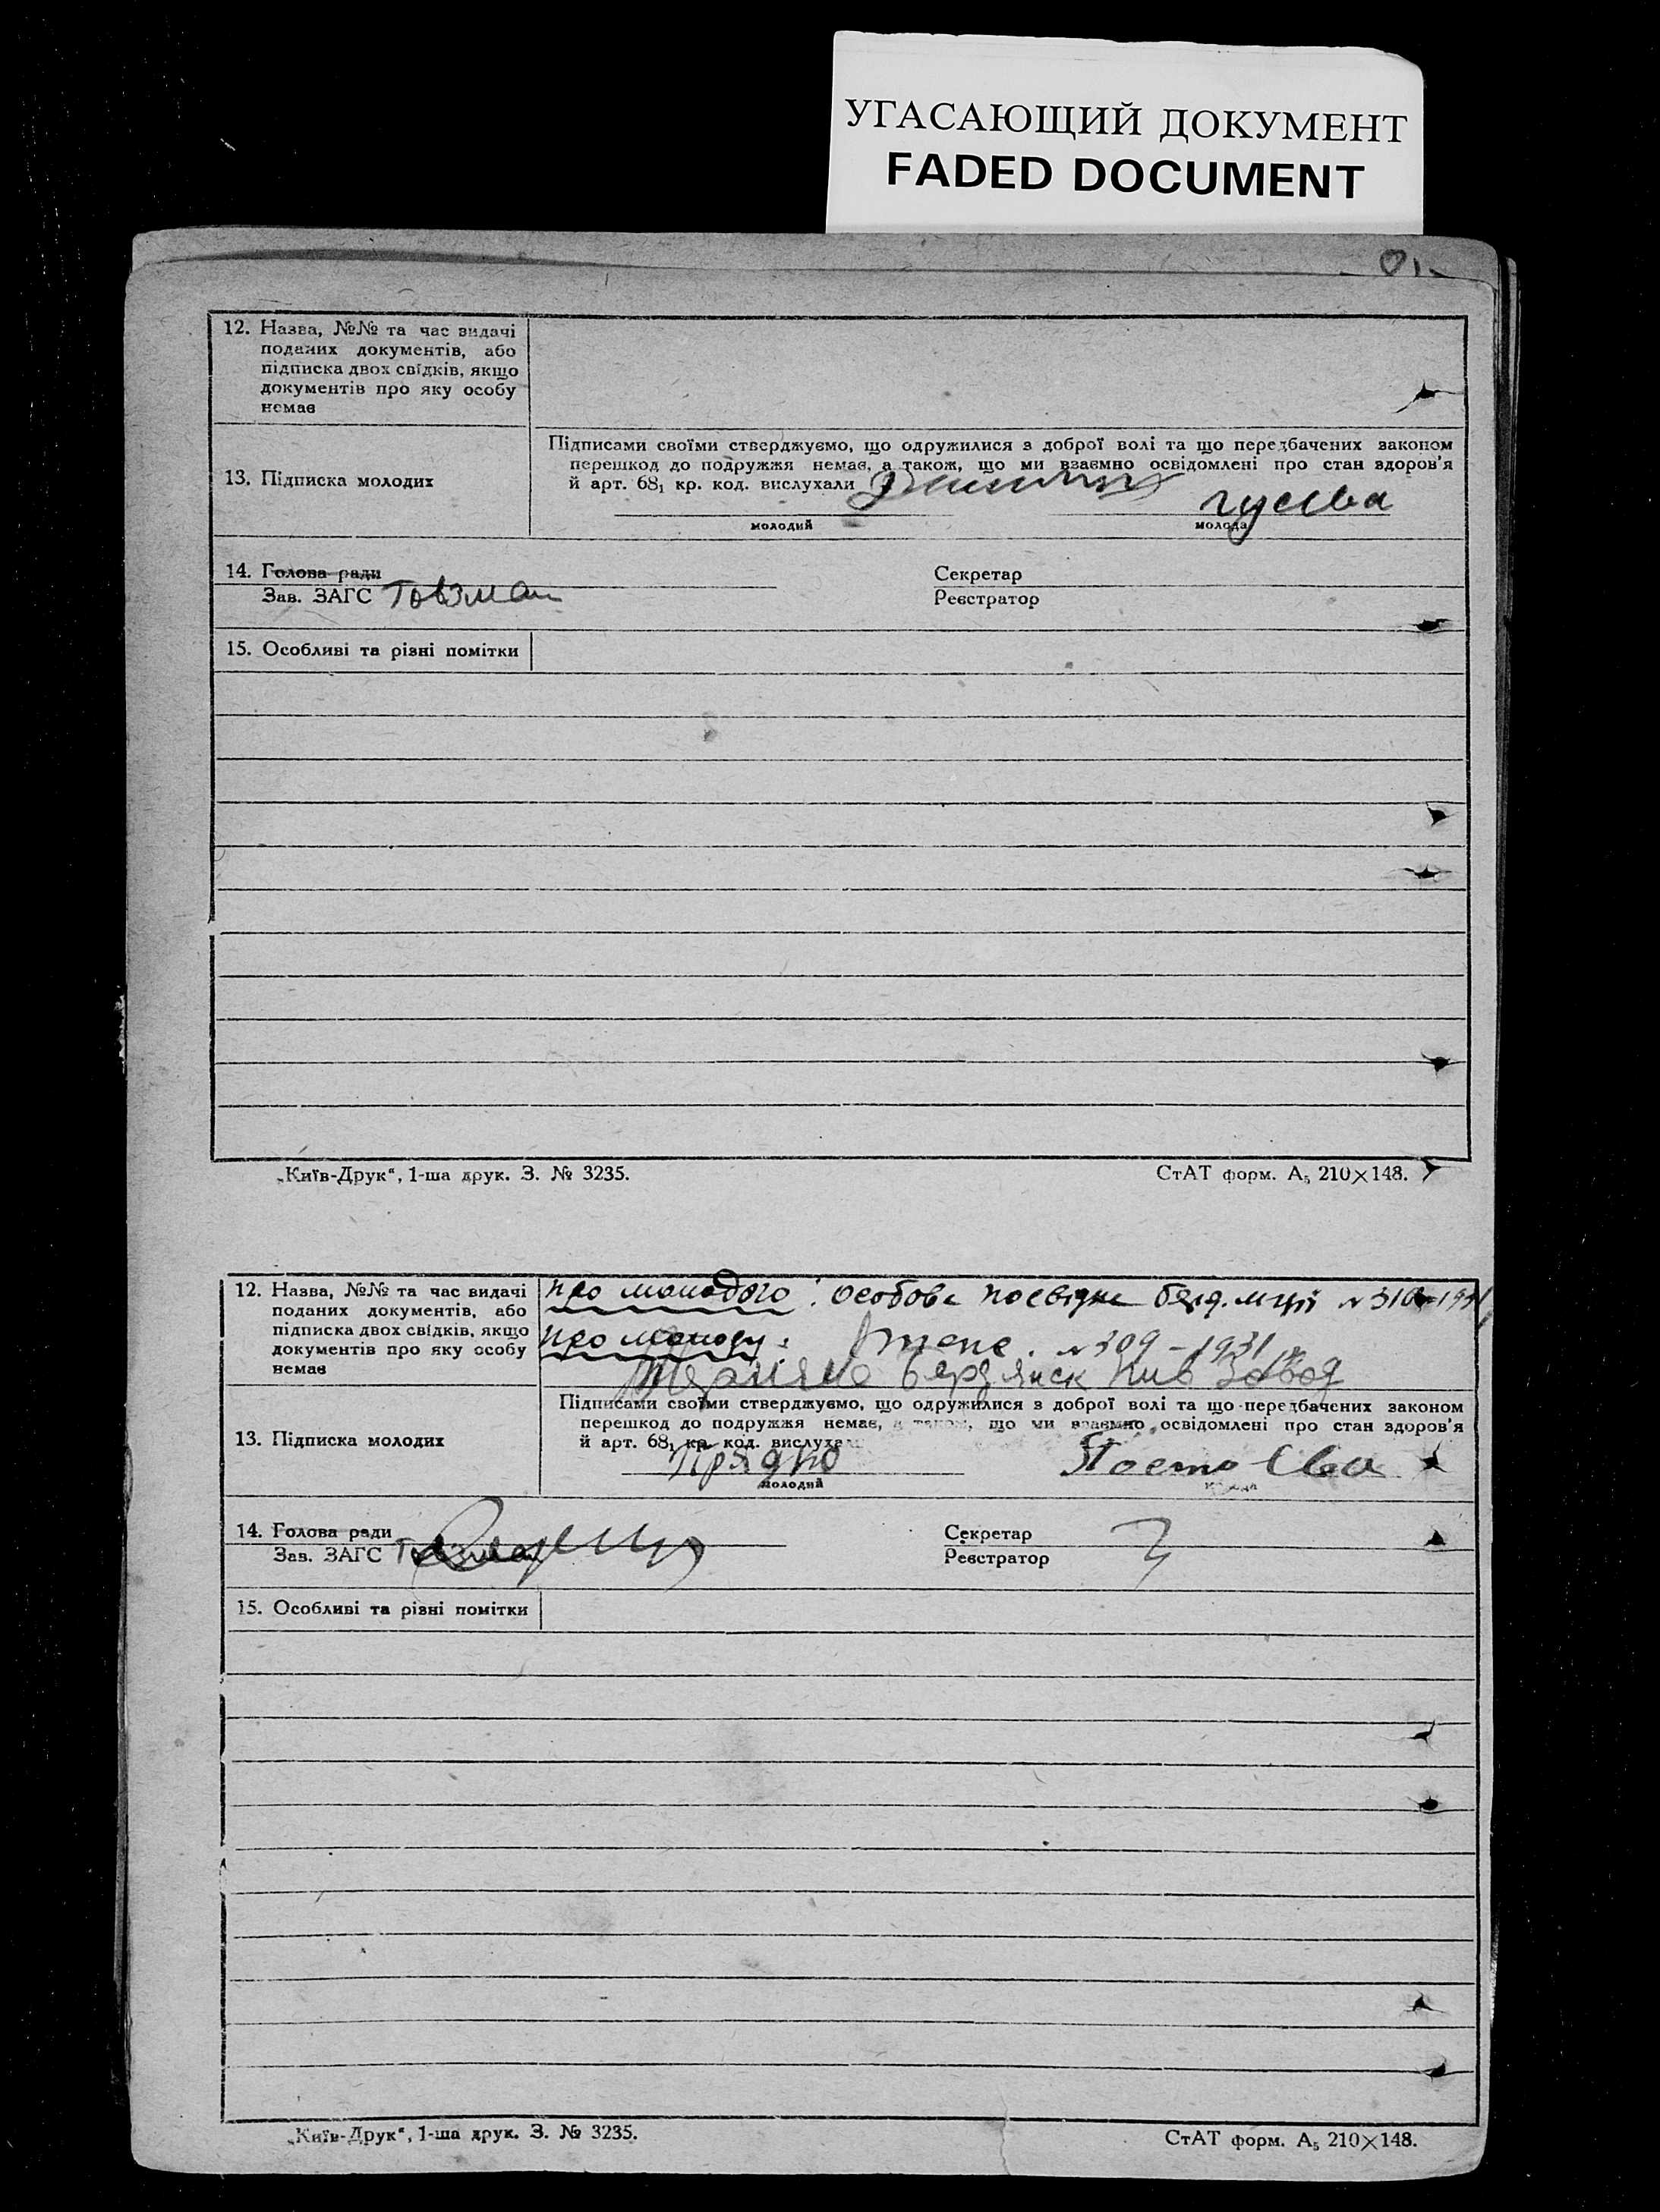 УГАСАЮЩИЙ ДОКУМЕНТ
FADED DOCUMENT
12. Назва, №№ та час видачі
поданих документів, або
підписка двох свідків, якщо
документів про яку особу
немає
13. Підписка молодих
Підписами своїми стверджуємо, що одружилися з доброї волі та що передбачених законом
перешкод до подружжя немає, а також, що ми взаємно освідомлені про стан здоров'я
й арт. 68₁ кр. код. вислухали
молодий
молода
14. Голова ради
Секретар
Зав. ЗАГС Товзман
Реєстратор
15. Особливі та різні помітки
„Київ-Друк“, 1-ша друк. З. № 3235.
СтАТ форм. А₅ 210×148.
12. Назва, №№ та час видачі
поданих документів, або
підписка двох свідків, якщо
документів про яку особу
немає
про молодого: особове Берд. №
про молоду: № 309 - 1931
Бердянск Пив Завод
13. Підписка молодих
Підписами своїми стверджуємо, що одружилися з доброї волі та що передбачених законом
перешкод до подружжя немає, а також, що ми взаємно освідомлені про стан здоров'я
й арт. 68₁ кр. код. вислуха
Прядко
молодий
14. Голова ради
Секретар
Зав. ЗАГС
Реєстратор
15. Особливі та різні помітки
„Київ-Друк“, 1-ша друк. З. № 3235.
СтАТ форм. А₅ 210×148.